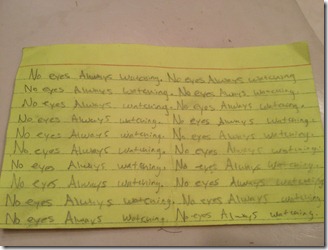 No eyes Always watching. No eyes Always watching
No eyes Always watching. No eyes Always watching.
No eyes Always watching. No eyes Always watching.
No eyes Always watching. No eyes Always watching.
No eyes Always watching. No eyes Always watching.
No eyes Always watching. No eyes Always watching.
No eyes Always watching. No eyes Always watching.
No eyes Always watching. No eyes Always watching
No eyes Always watching. No eyes Always watching
No eyes Always watching. No eyes Always watching.